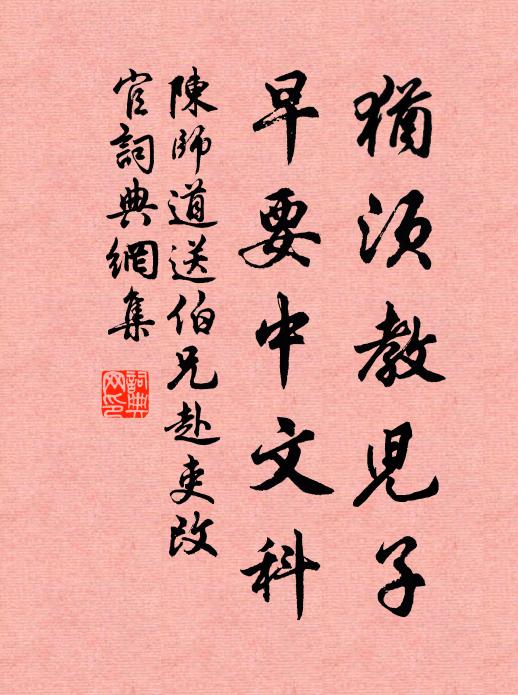 猶須教兒子
早要中文科
陳師道送伯兄赴吏改
官詞典網集
詞典
网印